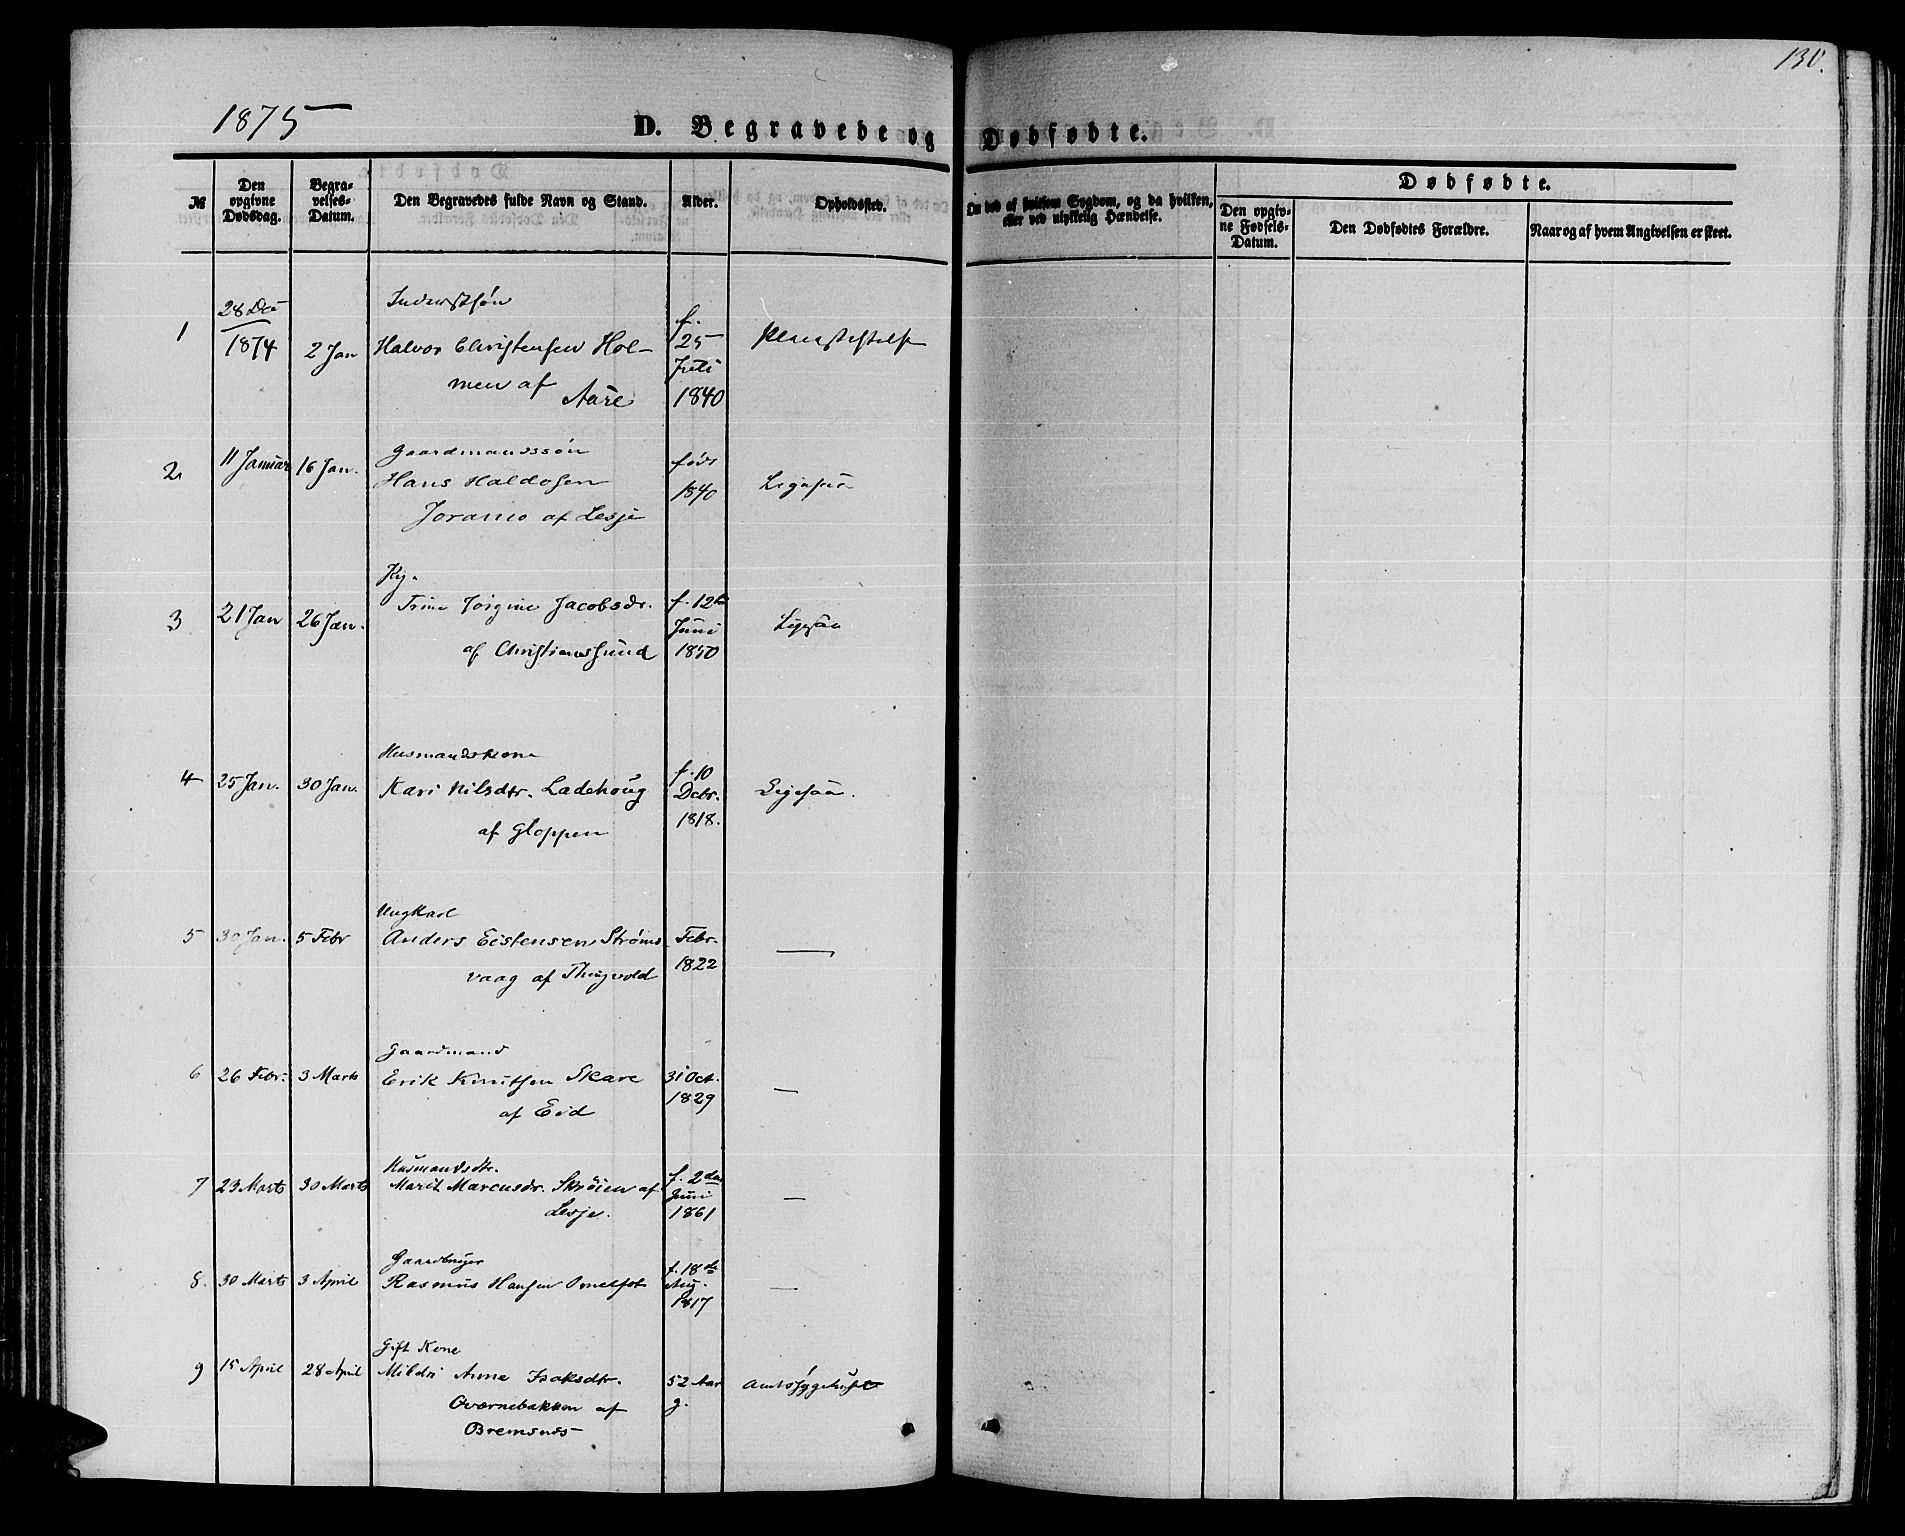 130.
1875
D. Begravede og Dødfødte.
№
Den opgivne Dødsdag.
Begravelses-Datum.
Den Begravedes fulde Navn og Stand.
Alder.
Opholdssted.
Om død af smitsom Sygdom, og da hvilken, eller ved ulykkelig Hændelse.
Dødfødte.
Den opgivne Fødsels-Datum.
Den Dødfødtes Forældre.
Naar og af hvem Angivelsen er skeet.
Inderstsøn
1 28 Dec 1874 2 Jan Halvor Christensen Holmen af Aure f. 25 Juli 1840 Pleiestiftelse
Gaardmandssøn
2 11 Januar 16 Jan. Hans Haldosen
Joramo af Lesje født 1840 Ligesaa
Pig.
3 21 Jan 26 Jan. Trine Jørgine Jacobsdr.
af Christianssund f. 12te Juni 1850 Ligesaa
Husmandskone
4 25 Jan. 30 Jan. Kari Nilsdtr. Ladehoug
af Gloppen f. 10 Decbr. 1818. Ligesaa.
Ungkarl
5 30 Jan. 5 Febr Anders Eistensen Strømsvaag af Thingvold Febr. 1822 —
Gaardmand
6 26 Febr. 3 Marts Erik Knutsen Skare
af Eid 31 Oct. 1829 —
Husmandsdtr.
7 23 Marts 30 Marts Marit Marcusdr. Skrøien af
Lesje. f. 2den Juni 1861 —
8. 30 Marts 3 April Rasmus Hansen f. 18de Aug. 1817 —
Gift Kone
9 15 April 28 April Mildri Anne Isaksdtr.
Oværnebakken af
Bremsnes 52 Aar g. Amtssygehuset